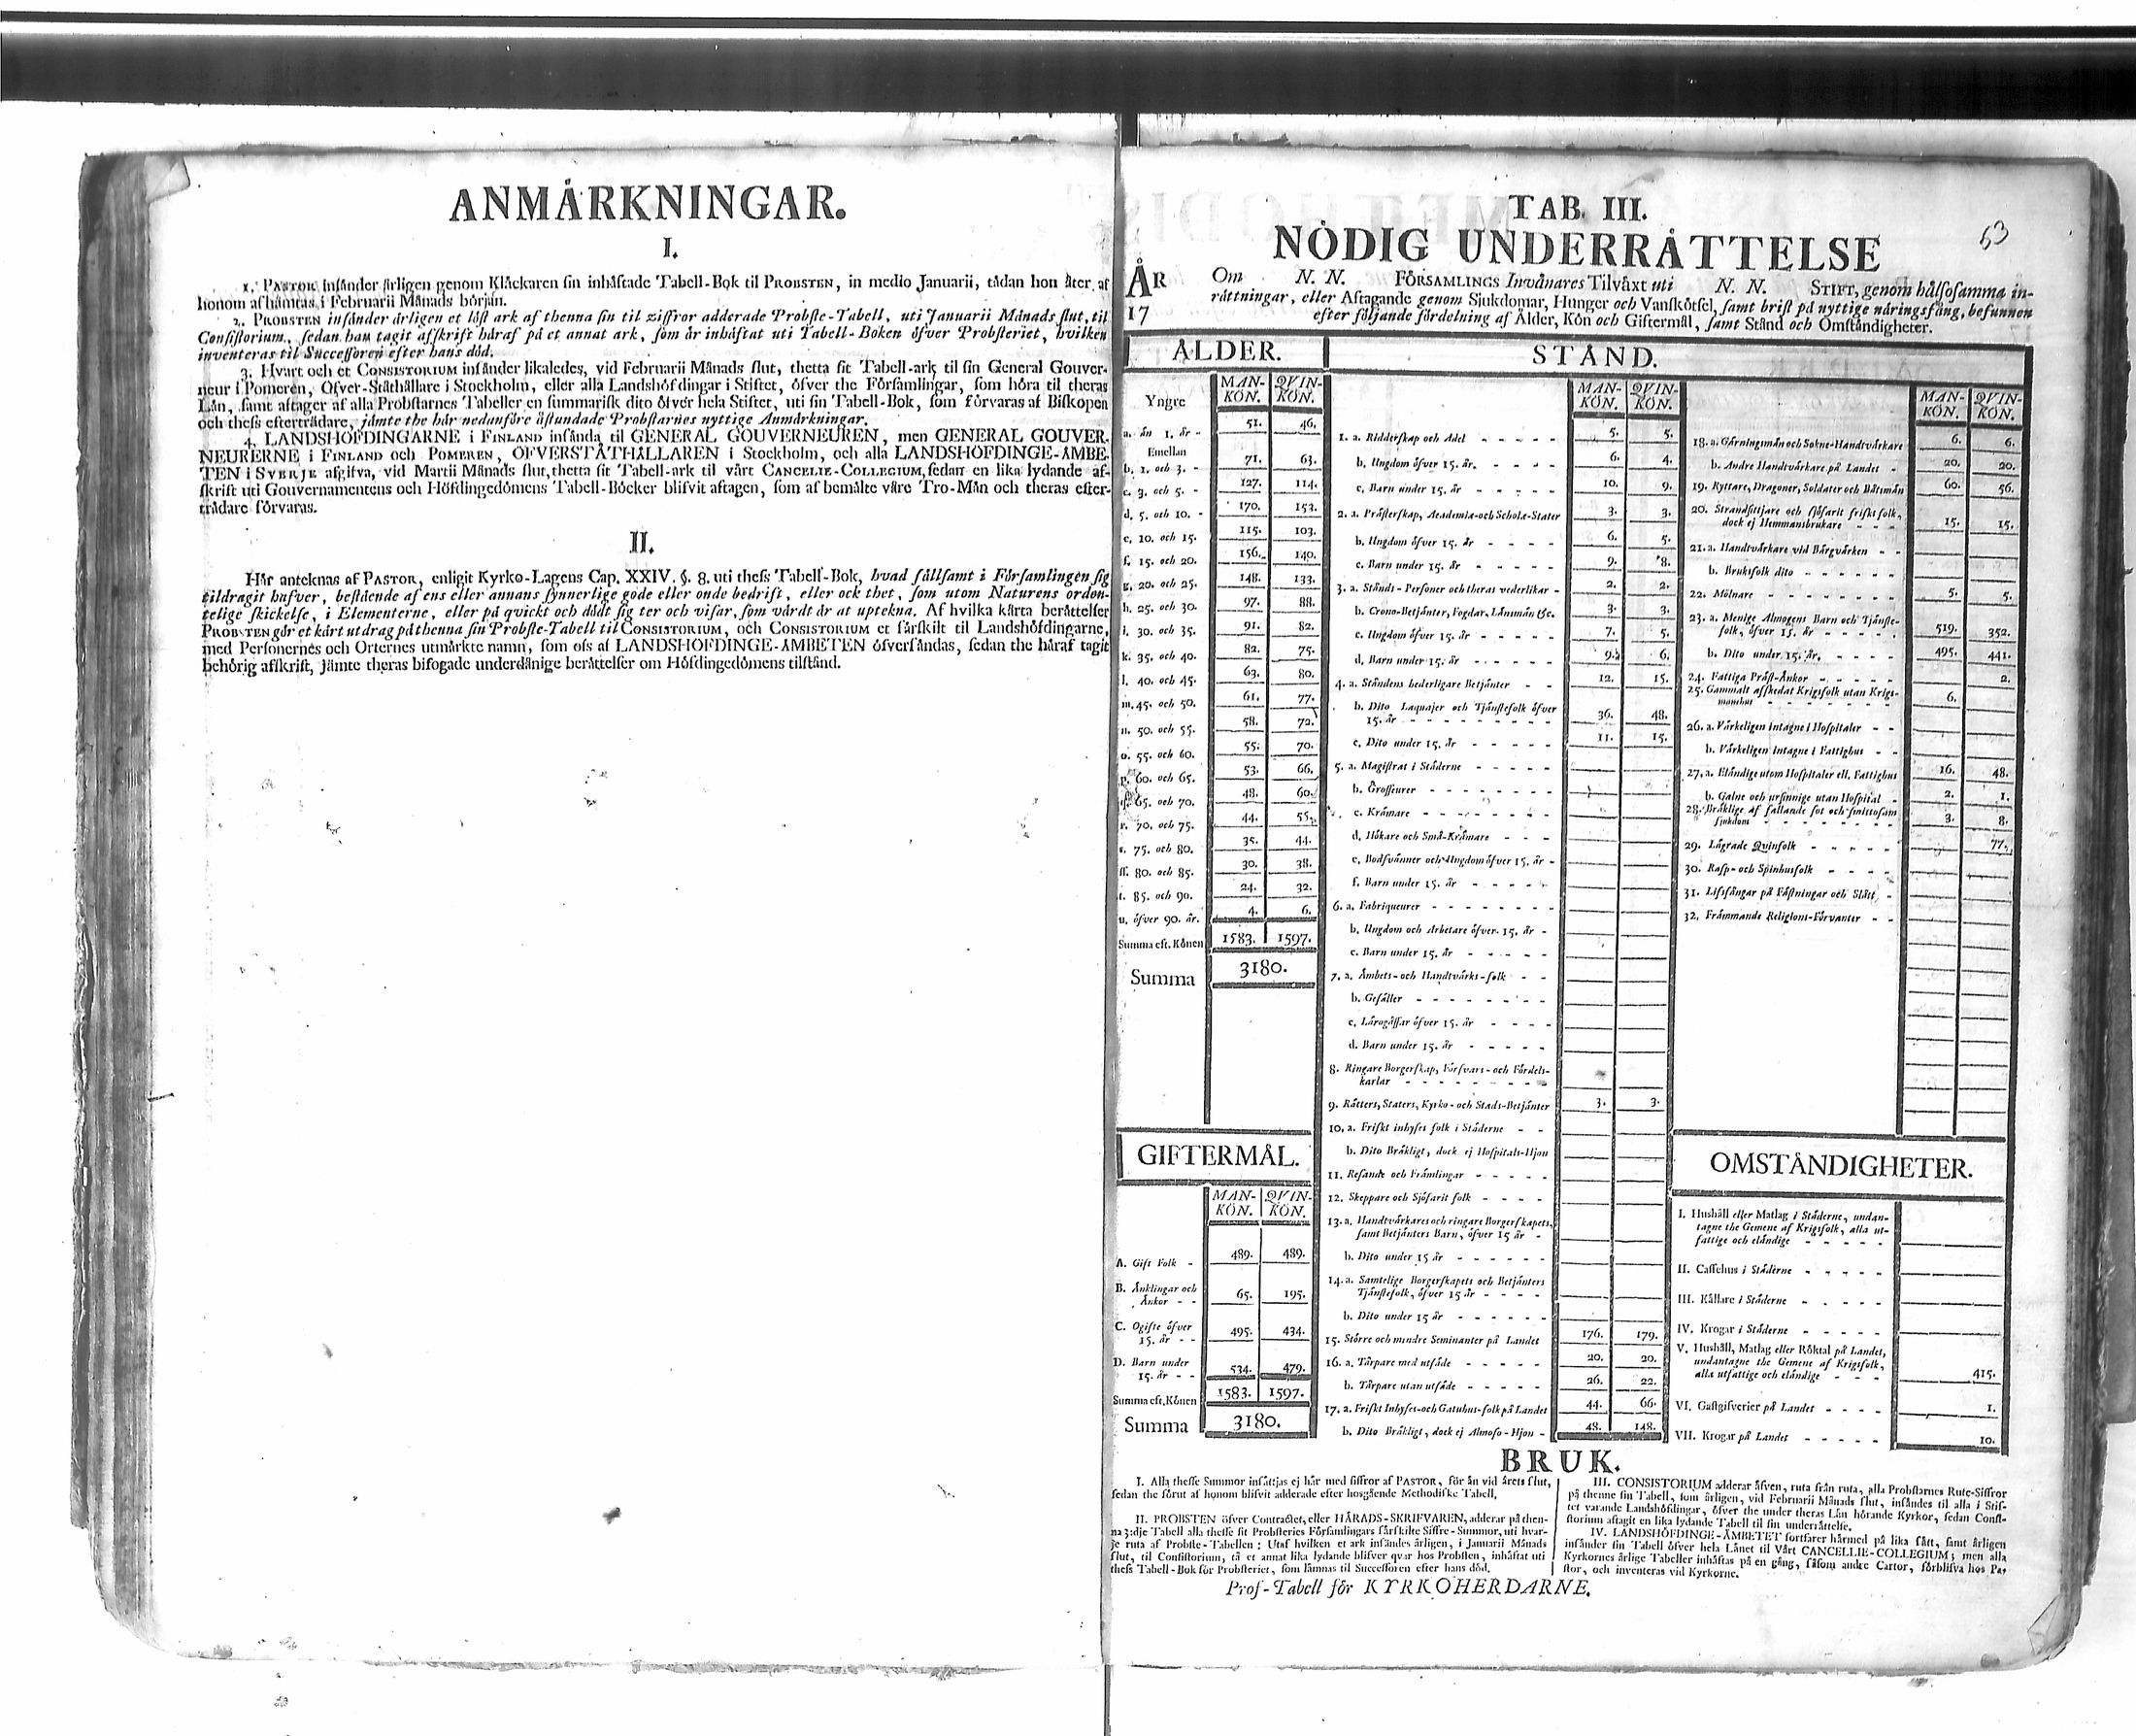 ANMÅRKNINGAR.
I.
1. PASTOR insånder årligen genom Klåckaren sin inhåftade Tabell-Bok til PROBSTEN, in medio Januarii, tådan hon åter af
honom afhåmtas i Februarii Månads börjån.
2. PROBSTEN insånder årligen et löst ark af thenna sin til ziffror adderade Probste-Tabell, uti Januarii Månads slut, til
Consistorium, sedan han tagit afskrift håraf på et annat ark, som år inhåftat uti Tabell-Boken öfver Probsteriet, hvilken
inventeras til Successoren efter hans död.
3. Hvart och et CONSISTORIUM insånder likaledes, vid Februarii Månads slut, thetta sit Tabell-ark til sin General Gouver-
neur i Pomeren, Öfver-Ståthållare i Stockholm, eller alla Landshöfdingar i Stiftet, öfver the Församlingar, som höra til theras
Lån, samt aftager af alla Probstarnes Tabeller en summarisk dito öfver hela Stiftet, uti sin Tabell-Bok, som förvaras af Biskopen
och thess eftertrådare, jåmte the hår nedanföre åstundade Probstarnes nyttige Anmårkningar.
4. LANDSHÖFDINGARNE i FINLAND insånda til GENERAL GOUVERNEUREN, men GENERAL GOUVER-
NEURERNE i FINLAND och POMEREN, ÖFVERSTÅTHÅLLAREN i Stockholm, och alla LANDSHÖFDINGE-ÅMBE-
TEN i SVERJE afgifva, vid Martii Månads slut, thetta sit Tabell-ark til vårt CANCELIE-COLLEGIUM, sedan en lika lydande af-
skrift uti Gouvernamentens och Höfdingedömens Tabell-Böcker blifvit aftagen, som af bemålte våre Tro-Mån och theras efter-
trådare förvaras.
II.
Hår anteknas af PASTOR, enligit Kyrko-Lagens Cap. XXIV. §. 8. uti thess Tabell-Bok, hvad sållsamt i Församlingen sig
tildragit hafver, bestående af ens eller annans synnerlige gode eller onde bedrift, eller ock thet, som utom Naturens orden-
telige skickelse, i Elementerne, eller på qvickt och dödt sig ter och visar, som vårdt år at uptekna. Af hvilka kårta beråttelser
PROBSTEN gör et kårt utdrag på thenna sin Probste-Tabell til CONSISTORIUM, och CONSISTORIUM et sårskilt til Landshöfdingarne,
med Personernes och Orternes utmårkte namn, som oss af LANDSHÖFDINGE-ÅMBETEN öfversåndas, sedan the håraf tagit
behörig afskrift, jåmte theras bifogade underdånige beråttelser om Höfdingedömens tilstånd.
63
TAB. III.
NÖDIG UNDERRÅTTELSE
ÅR 17
Om N. N. FÖRSAMLINGS Invånares Tilvåxt uti N. N. STIFT, genom hålsosamma in-
råttningar, eller Aftagande genom Sjukdomar, Hunger och Vanskötsel, samt brist på nyttige nåringsfång, befunnen
efter följande fördelning af Ålder, Kön och Giftermål, samt Stånd och Omståndigheter.
ÅLDER.
MAN-KÖN. QVIN-KÖN.
Yngre
a. ån 1. år - 51. 46.
Emellan
b. 1. och 3. - 71. 63.
c. 3. och 5. - 127. 114.
d. 5. och 10. - 170. 153.
e. 10. och 15. 115. 103.
f. 15. och 20. 156. 140.
g. 20. och 25. 148. 133.
h. 25. och 30. 97. 88.
i. 30. och 35. 91. 82.
k. 35. och 40. 82. 75.
l. 40. och 45. 63. 80.
m. 45. och 50. 61. 77.
n. 50. och 55. 58. 72.
o. 55. och 60. 55. 70.
p. 60. och 65. 53. 66.
q. 65. och 70. 48. 60.
r. 70. och 75. 44. 55.
s. 75. och 80. 35. 44.
ff. 80. och 85. 30. 38.
t. 85. och 90. 24. 32.
u. öfver 90. år. 4. 6.
Summa eft. Könen 1583. 1597.
Summa 3180.
GIFTERMÅL.
MAN-KÖN. QVIN-KÖN.
A. Gift Folk - 489. 489.
B. Änklingar och
Änkor - - 65. 195.
C. Ogifte öfver
15. år - - 495. 434.
D. Barn under
15. år - - 534. 479.
Summa eft. Könen 1583. 1597.
Summa 3180.
STÅND.
MAN-KÖN. QVIN-KÖN.
1. a. Ridderskap och Adel 5. 5.
b. Ungdom öfver 15. år. 6. 4.
c. Barn under 15. år 10. 9.
2. a. Pråsterskap, Academiæ-och Scholæ-Stater 3. 3.
b. Ungdom öfver 15. år 6. 5.
c. Barn under 15. år 9. 8.
3. a. Stånds-Personer och theras vederlikar - 2. 2.
b. Crono-Betjånter, Fogdar, Lånsmån &c. 3. 3.
c. Ungdom öfver 15. år 7. 5.
d. Barn under 15. år 9. 6.
4. a. Ståndens hederligare Betjånter 12. 15.
b. Dito Laquajer och Tjånstefolk öfver
15. år 36. 48.
c. Dito under 15. år 11. 15.
5. a. Magistrat i Ståderne
b. Grosseurer
c. Kråmare
d. Hökare och Små-Kråmare
e. Bodsvånner och Ungdom öfver 15. år -
f. Barn under 15. år
6. a. Fabriqueurer
b. Ungdom och Arbetare öfver 15. år -
c. Barn under 15. år
7. a. Åmbets-och Handtvårks-folk
b. Gesåller
c. Lårogåssar öfver 15. år
d. Barn under 15. år
8. Ringare Borgerskap, Försvars-och Fördels-
karlar
9. Råtters, Staters, Kyrko-och Stads-Betjånter 3. 3.
10. a. Friskt inhyses folk i Ståderne
b. Dito Bråkligt, dock ej Hospitals-Hjon
11. Resande och Fråmlingar
12. Skeppare och Sjöfarit folk
13. a. Handtvårkares och ringare Borgerskapets,
samt Betjånters Barn, öfver 15 år -
b. Dito under 15 år
14. a. Samtelige Borgerskapets och Betjånters
Tjånstefolk, öfver 15 år
b. Dito under 15 år
15. Större och mindre Seminanter på Landet 176. 179.
16. a. Tårpare med utsåde 20. 20.
b. Tårpare utan utsåde 26. 22.
17. a. Friskt Inhyses-och Gatuhus-folk på Landet 44. 66.
b. Dito Bråkligt, dock ej Almoso-Hjon - 48. 148.
MAN-KÖN. QVIN-KÖN.
18. a. Gårningsmån och Sokne-Handtvårkare 6. 6.
b. Andre Handtvårkare på Landet - 20. 20.
19. Ryttare, Dragoner, Soldater och Båtsmån 60. 56.
20. Strandsittjare och sjöfarit friskt folk,
dock ej Hemmansbrukare 15. 15.
21. a. Handtvårkare vid Bårgvårken
b. Bruksfolk dito
22. Mölnare 5. 5.
23. a. Menige Almogens Barn och Tjånste-
folk, öfver 15. år 519. 352.
b. Dito under 15. år. 495. 441.
24. Fattiga Pråst-Änkor 2.
25. Gammalt afskedat Krigsfolk utan Krigs-
manshus 6.
26. a. Vårkeligen intagne i Hospitaler
b. Vårkeligen intagne i Fattighus
27. a. Elåndige utom Hospitaler ell. Fattighus 16. 48.
b. Galne och ursinnige utan Hospital - 2. 1.
28. Bråklige af fallande sot och smittosam
sjukdom 3. 8.
29. Lågrade Qvinfolk 77.
30. Rasp-och Spinhusfolk
31. Lifsfångar på Fåstningar och Slått
32. Fråmmande Religions-Förvanter
OMSTÅNDIGHETER.
I. Hushåll eller Matlag i Ståderne, undan-
tagne the Gemene af Krigsfolk, alla ut-
fattige och elåndige
II. Caffehus i Ståderne
III. Kållare i Ståderne
IV. Krogar i Ståderne
V. Hushåll, Matlag eller Röktal på Landet,
undantagne the Gemene af Krigsfolk,
alla utfattige och elåndige 415.
VI. Gåstgifverier på Landet 1.
VII. Krogar på Landet 10.
BRUK.
I. Alla thesse Summor insåttjas ej hår med siffror af PASTOR, för ån vid årets slut,
sedan the förut af honom blifvit adderade efter hosgående Methodiske Tabell.
II. PROBSTEN öfver Contractet, eller HÅRADS-SKRIFVAREN, adderar på then-
na 3:dje Tabell alla thesse sit Probsteries Församlingars sårskilte Siffre-Summor, uti hvar-
je ruta af Probste-Tabellen: Utaf hvilken et ark insåndes årligen, i Januarii Månads
slut, til Consistorium, tå et annat lika lydande blifver qvar hos Probsten, inhåftat uti
thess Tabell-Bok för Probsteriet, som låmnas til Successoren efter hans död.
III. CONSISTORIUM adderar åfven, ruta från ruta, alla Probstarnes Rute-Siffror
på thenne sin Tabell, som årligen, vid Februarii Månads slut, insåndes til alla i Stif-
tet varande Landshöfdingar, öfver the under theras Lån hörande Kyrkor, sedan Consi-
storium aftagit en lika lydande Tabell til sin underråttelse.
IV. LANDSHÖFDINGE-ÅMBETET fortfarer hårmed på lika sått, samt årligen
insånder sin Tabell öfver hela Lånet til Vårt CANCELLIE-COLLEGIUM; men alla
Kyrkornes årlige Tabeller inhåftas på en gång, såsom andre Cartor, förblifva hos Pa-
stor, och inventeras vid Kyrkorne.
Prof-Tabell för KYRKOHERDARNE.